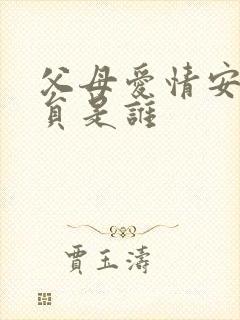 父母愛情安
貟是誰
賈玉濤